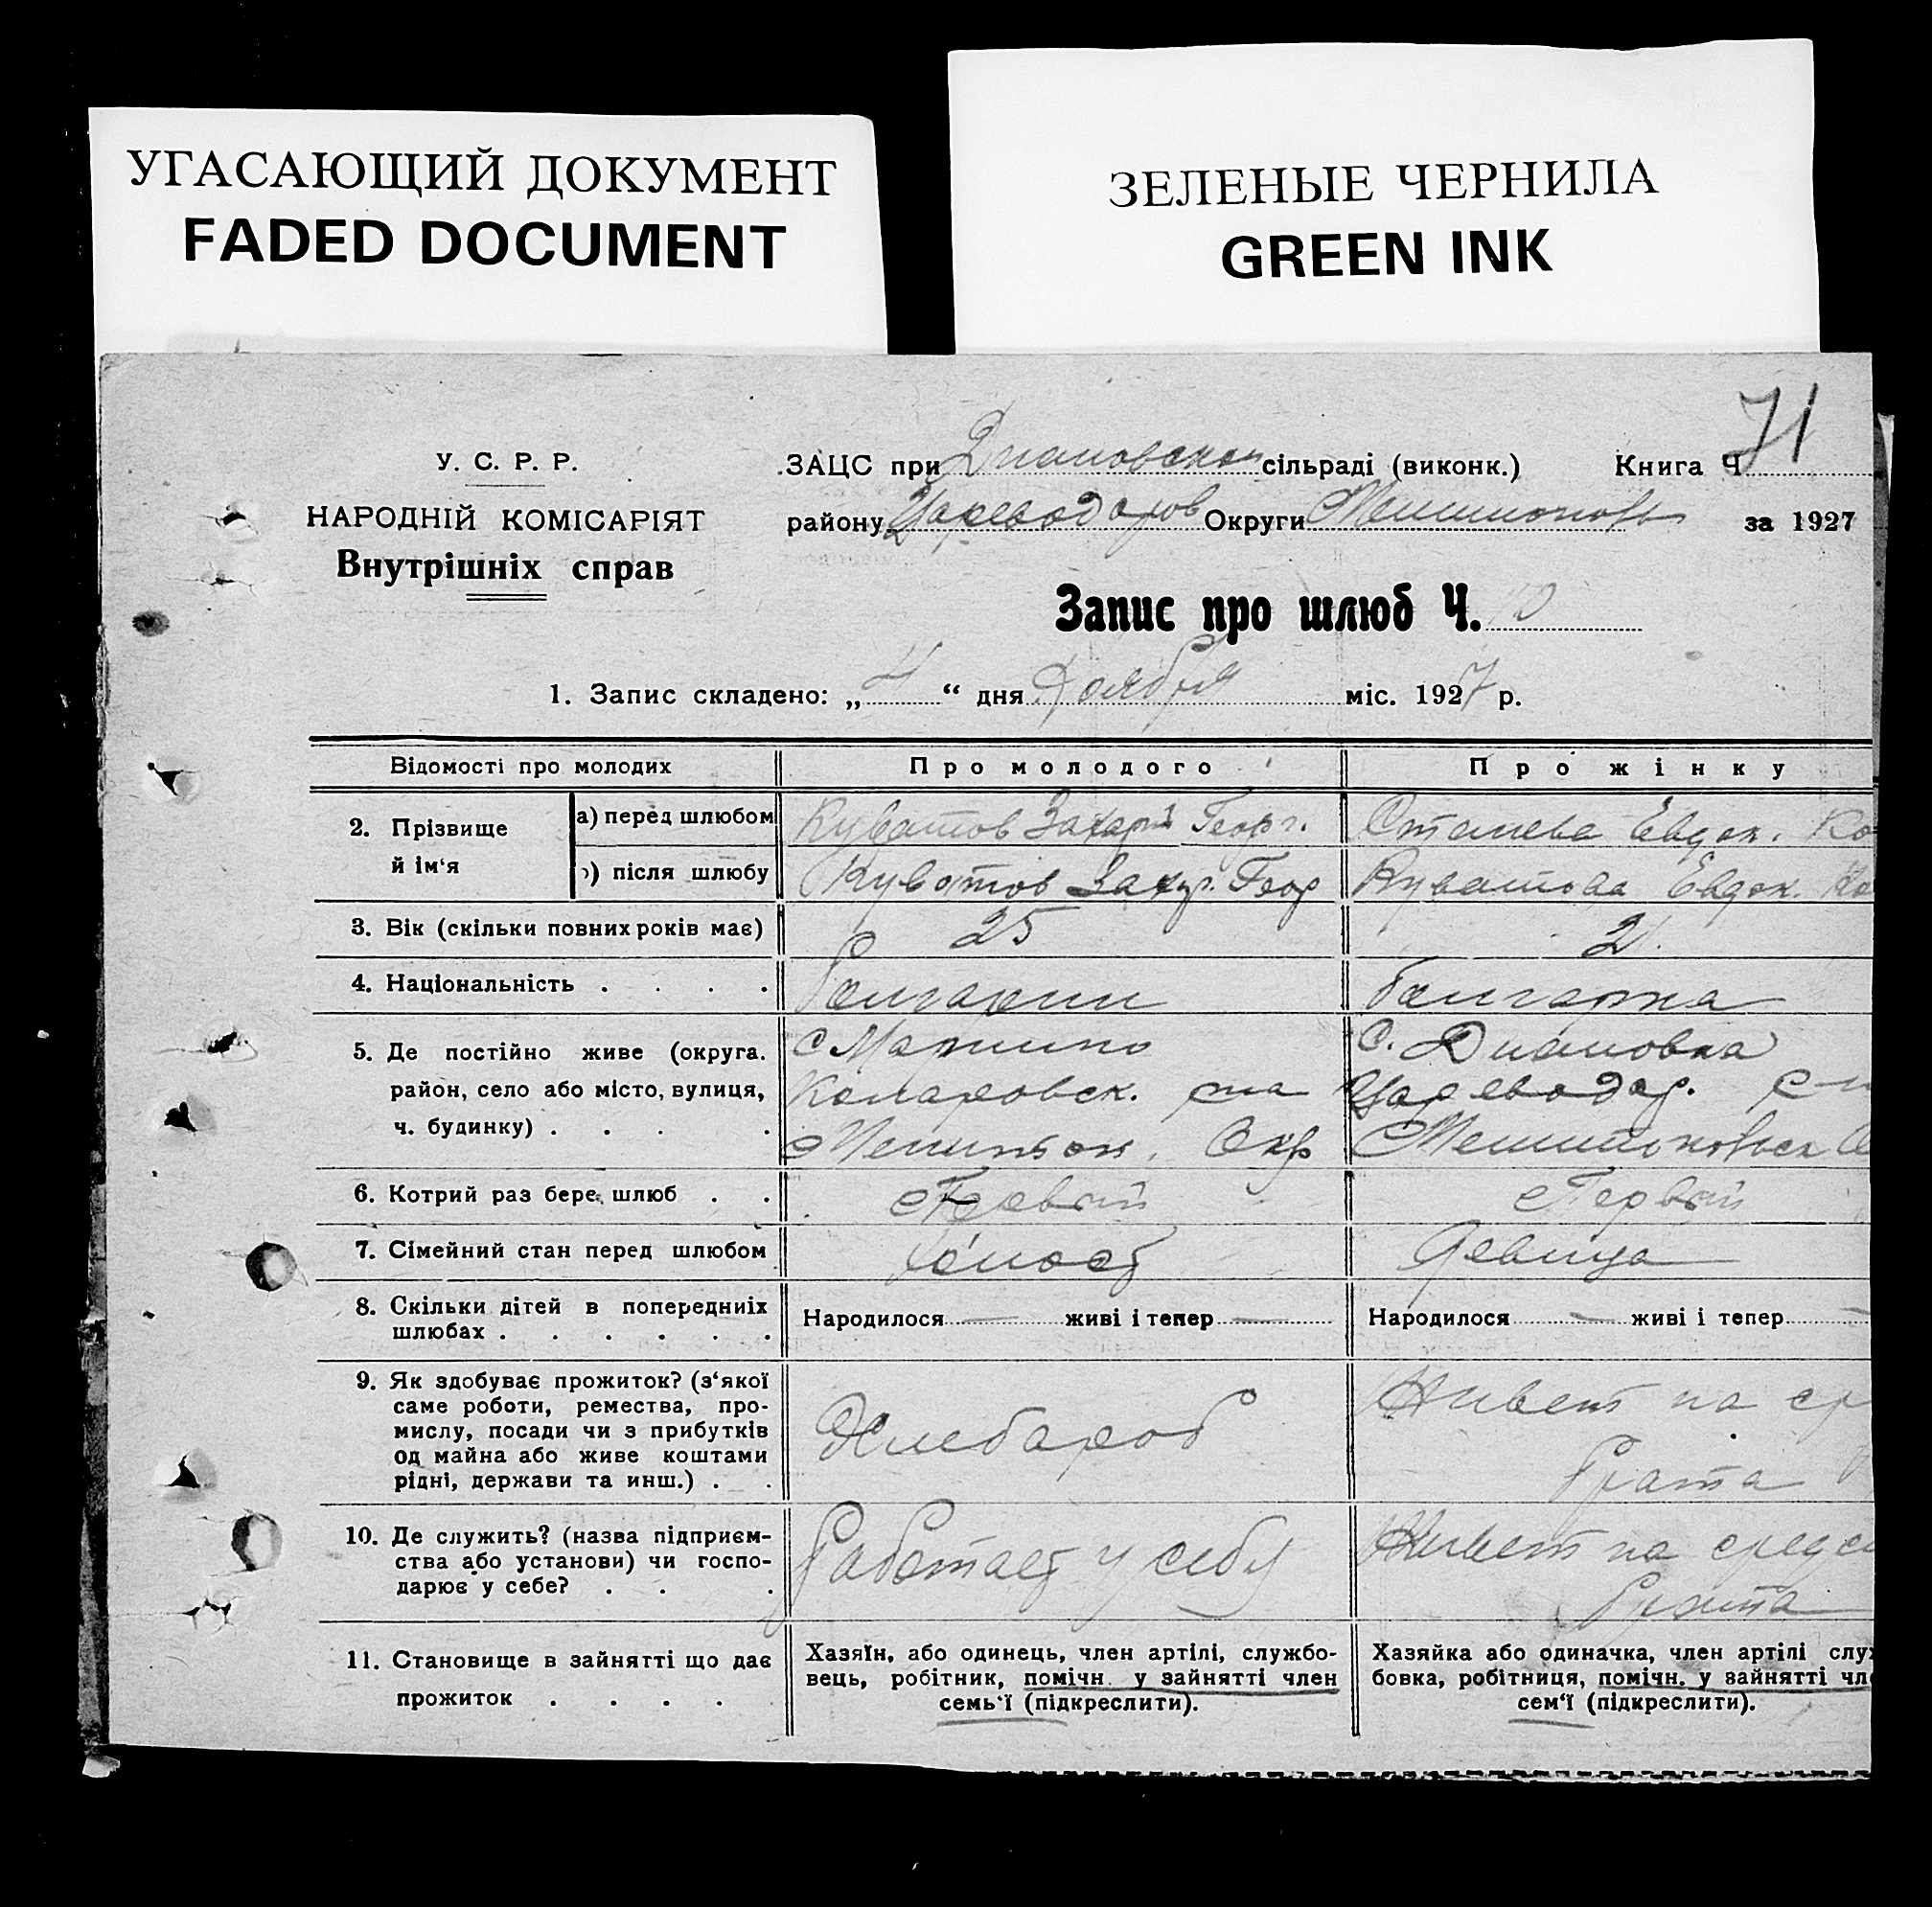 УГАСАЮЩИЙ ДОКУМЕНТ
FADED DOCUMENT
ЗЕЛЕНЫЕ ЧЕРНИЛА
GREEN INK
71
У. С. Р. Р.
НАРОДНІЙ КОМІСАРІЯТ
Внутрішніх справ
ЗАЦС при Диановском сільраді (виконк.) Книга Ч
району Цареводаров Округи за 1927
Запис про шлюб Ч. 10
1. Запис складено: „ 4 “ дня Ноября міс. 1927 р.
Відомості про молодих Про молодого Про жінку
2. Прізвище й ім‘я
а) перед шлюбом Куватов Захарий Георг. Сталева Евдок. Ко
) після шлюбу Куватов Захар. Геор Куватова Евдок. Ко
3. Вік (скільки повних років має) 25 21.
4. Національність . . . . Болгарин болгарка
5. Де постійно живе (округа. район, село або місто, вулиця, ч. будинку) . . . .
с Марино
Коларовск. р-на
Мелитоп. Окр
С. Диановка
Цареводар. р-н
Мелитопольск О
6. Котрий раз бере шлюб . . Первый Первый
7. Сімейний стан перед шлюбом Холост Девица
8. Скільки дітей в попередниіх шлюбах . . . . . . Народилося — живі і тепер — Народилося — живі і тепер —
9. Як здобуває прожиток? (з‘якої
саме роботи, ремества, про-
мислу, посади чи з прибутків
од майна або живе коштами
рідні, держави та инш.) . .
Хлебороб
Живет на ср
брата
10. Де служить? (назва підприєм-
ства або установи) чи госпо-
дарює у себе? . . .
Работает у себя
Живет на средс
брата
11. Становище в зайнятті що дає
прожиток . . . .
Хазяїн, або одинець, член артілі, службо-
вець, робітник, помічн. у зайнятті член
семь‘ї (підкреслити).
Хазяйка або одиначка, член артілі служ
бовка, робітниця, помічн. у зайнятті чле
сем‘ї (підкреслити).